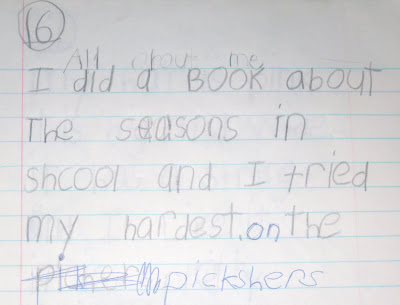 16
All about me
I did a BOOK about
The seasons in
shcool and I tried
my hardest. on the
pickshers